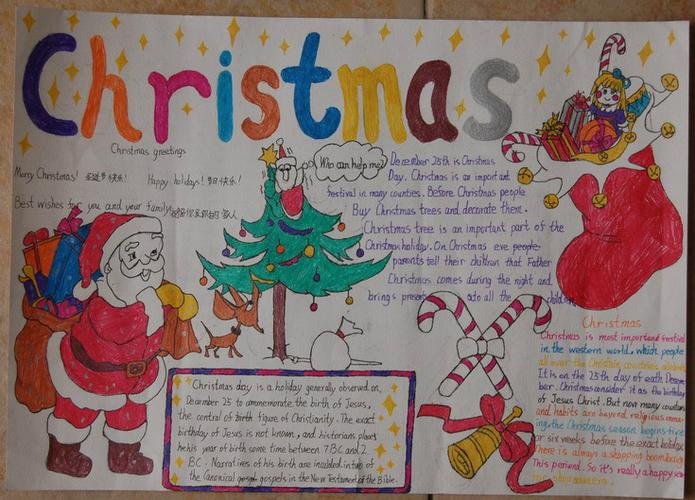 Christmas
Christmas greetings
Merry Christmas! 圣诞节快乐!
Happy holidays! 节日快乐!
Best wishes for you and your family
Who can help me?
December 25th is Christmas
Day. Christmas is an important
festival in many counties. Before Christmas people
Buy Christmas trees and decorate them.
Christmas tree is an important part of the
Christmas holiday. On Christmas eve people
parents tell their children that Father
Christmas comes during the night and
brings to all the children
Christmas
Christmas is most important festival
in the western world, which people
all over the Christian countries
It is on the 25th day of each Decem
ber. Christians consider it as the birthday
of Jesus Christ. But now many countries
and habits are beyond religious mean
ing. the Christmas season begins five
or six weeks before the exact holiday
There is always a shopping boom
This periend. So it's really a happy
Christmas day is a holiday generally observed on
December 25 to commemorate the birth of Jesus,
the central of birth figure of Christianity. The exact
birthday of Jesus is not known, and historians place
his year of birth some time between 7BC and 2
BC. Narratives of his birth are included in two of
the Canonical gospels in the New Testament of the Bible.